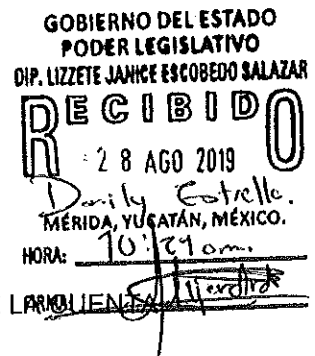 GOBIERNO DEL ESTADO
PODER LEGISLATIVO
DIP. LIZZETE JANICE ESCOBEDO SALAZAR
RECIBIDO
28 AGO 2019
MÉRIDA, YUCATÁN, MÉXICO.
HORA: 10:29 am.